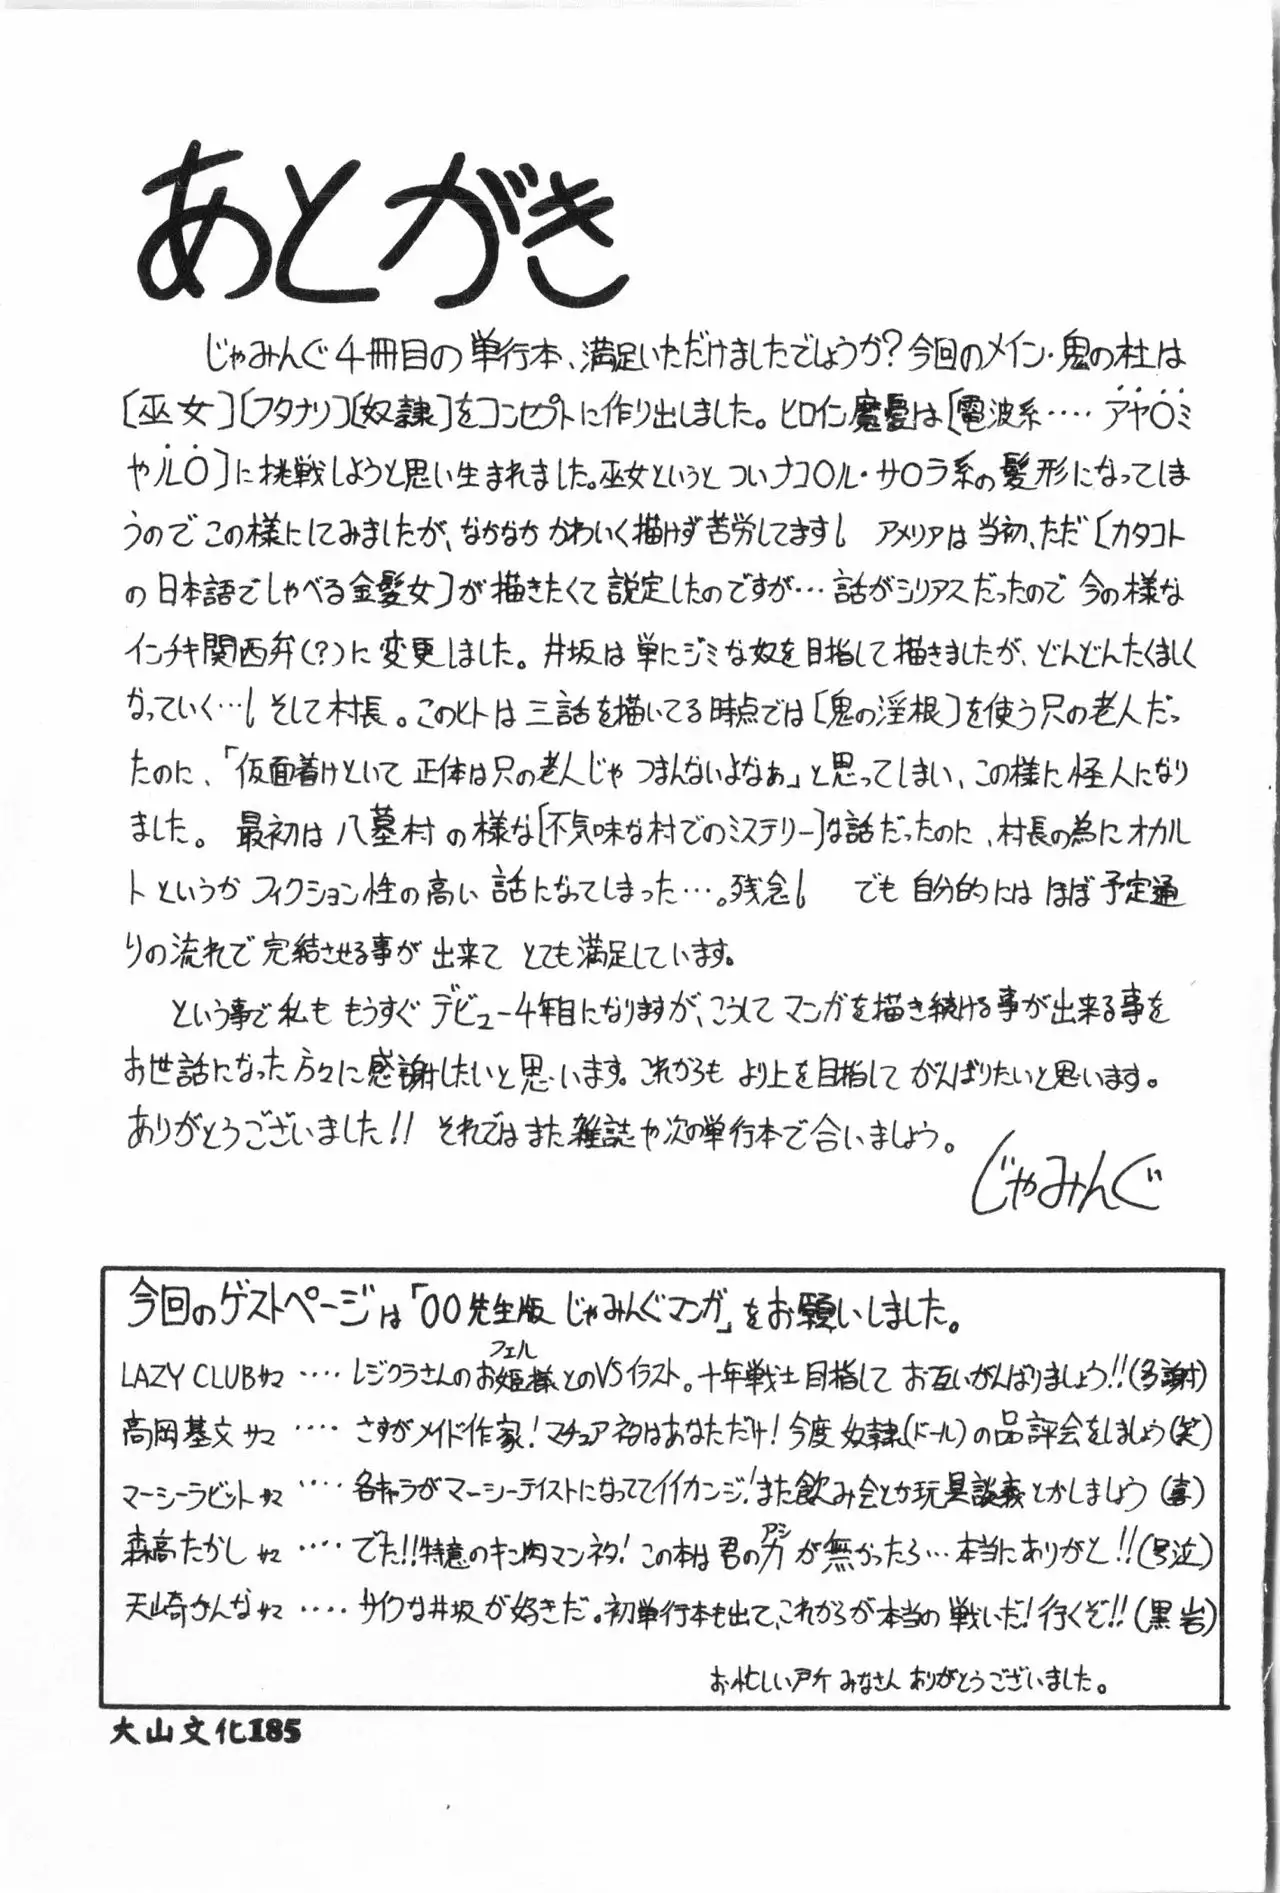 あとがき
じゃみんぐ4冊目の単行本、満足いただけましたでしょうか?今回のメイン・鬼の杜は
[巫女][フタナリ][奴隷]をコンセプトに作り出しました。ヒロイン魔憂は[電波系‥‥‥アヤ〇ミ
やル〇]に挑戦しようと思い生まれました。巫女というとついナコ〇ル・サ〇ラ系の髪形になってしま
うのでこの様にしてみましたが、なかなかかわいく描けず苦労してます! アメリアは当初、ただ[カタコト
の日本語でしゃべる金髪女]が描きたくて設定したのですが…話がシリアスだったので今の様な
インチキ関西弁(?)に変更しました。井坂は単にジミな奴を目指して描きましたが、どんどんたくましく
なっていく…!そして村長。このヒトは三話を描いてる時点では[鬼の淫根]を使う只の老人だっ
たのに、「仮面着けといて正体は只の老人じゃつまんないよなぁ」と思ってしまい、この様に怪人になり
ました。最初は八墓村の様な[不気味な村でのミステリー]な話だったのに、村長の為にオカル
トというかフィクション性の高い話になってしまった…。残念! でも自分的にはほぼ予定通
りの流れで完結させる事が出来てとても満足しています。
という事で私ももうすぐデビュー4年目になりますが、こうしてマンガを描き続ける事が出来る事を
お世話になった方々に感謝したいと思います。これからもより上を目指してがんばりたいと思います。
ありがとうございました!!それではまた雑誌や次の単行本で合いましょう。
じゃみんぐ
今回のゲストページは「〇〇先生版じゃみんぐマンガ」をお願いしました。
LAZY CLUBサマ‥‥レジクラさんのお姫様とのVSイラスト。十年戦士目指してお互いがんばりましょう!!(多謝)
フェル
高岡基文サマ‥‥さすがメイド作家!マチュアネタはあなただけ!今度奴隷(ドール)の品評会をしましょう(笑)
マーシーラビットサマ‥‥各キャラがマーシーテイストになっててイイカンジ!また飲み会とか玩具談義とかしましょう(喜)
森高たかしサマ‥‥でた!!特意のキン肉マンネタ!この本は君の力が無かったら…本当にありがと!!(号泣)
アシ
天崎かんなサマ‥‥サイクな井坂が好きだ。初単行本も出て、これからが本当の戦いだ!行くぞ!!(黒岩)
お忙しい中みなさんありがとうございました。
大山文化185